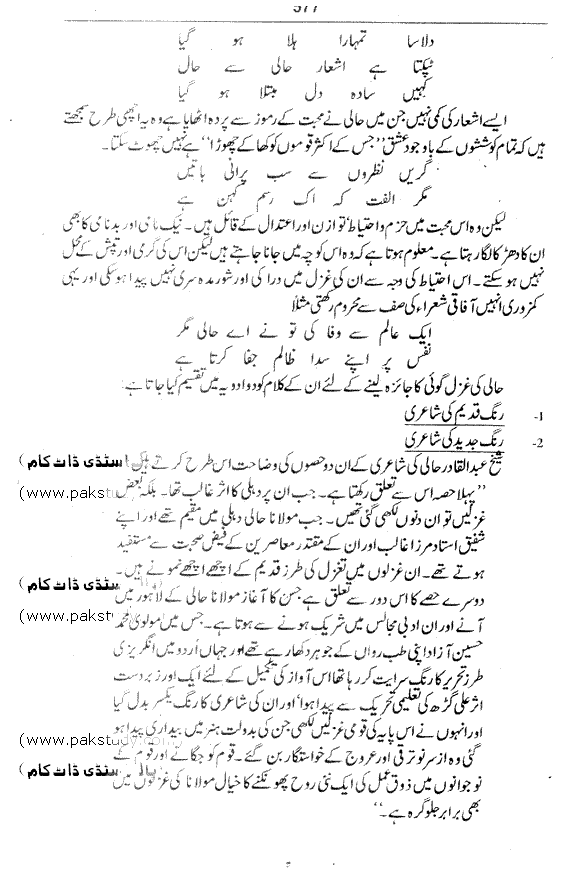 377
دلاسا تمہارا بلا ہو گیا
ٹپکتا ہے اشعار حالی سے حال
کہیں سادہ دل مبتلا ہو گیا
ایسے اشعار کی کمی نہیں جن میں حالی نے محبت کے رموز سے پردہ اٹھایا ہے وہ یہ اچھی طرح سمجھتے
ہیں کہ تمام کوششوں کے باوجود عشق "جس کے اکثر قوموں کو کھا کے چھوڑا" ہے نہیں چھوٹ سکتا۔
گریں نظروں سے سب پرانی باتیں
مگر الفت کہ اک رسم کہن ہے
لیکن وہ اس محبت میں حزم و احتیاط، توازن اور اعتدال کے قائل ہیں۔ نیک نامی اور بدنامی کا بھی
ان کا دھڑکا لگا رہتا ہے۔ معلوم ہوتا ہے کہ وہ اس کوچہ میں جانا چاہتے ہیں لیکن اس کی گرمی اور تپش کے متحمل
نہیں ہو سکتے۔ اس احتیاط کی وجہ سے ان کی غزل میں درا کی اور شوریدہ سری نہیں پیدا ہو سکی اور یہی
کمزوری انہیں آفاقی شعراء کی صف سے محروم رکھتی مثلاً
ایک عالم سے وفا کی تو نے اے حالی مگر
نفس پر اپنے سدا ظالم جفا کرتا ہے
حالی کی غزل گوئی کا جائزہ لینے کے لئے ان کے کلام کو دو ادوار میں تقسیم کیا جاتا ہے:
1- رنگ قدیم کی شاعری
2- رنگ جدید کی شاعری
شیخ عبدالقادر حالی کی شاعری کے ان دو حصوں کی وضاحت اس طرح کرتے ہیں اسٹڈی ڈاٹ کام)
"پہلا حصہ اس سے تعلق رکھتا ہے۔ جب ان پر دہلی کا اثر غالب تھا۔ بلکہ بعض (www.pakstu
غزلیں تو ان دنوں لکھی گئی تھیں۔ جب مولانا حالی دہلی میں مقیم تھے اور اپنے
شفیق استاد مرزا غالب اور ان کے مقتدر معاصرین کے فیض صحبت سے مستفید
ہوتے تھے۔ ان غزلوں میں تغزل کی طرز قدیم کے اچھے اچھے نمونے ہیں۔
دوسرے حصے کا اس دور سے تعلق ہے جس کا آغاز مولانا حالی کے لاہور میں اسٹڈی ڈاٹ کام)
آنے اور ان ادبی مجالس میں شریک ہونے سے ہوتا ہے۔ جس میں مولوی محمد (www.pakst
حسین آزاد اپنی طب رواں کے جوہر دکھا رہے تھے اور جہاں اُردو میں انگریزی
طرز تحریر کا رنگ سرایت کر رہا تھا اس آواز کی تکمیل کے لئے ایک اور زبردست
اثر علی گڑھ کی تعلیمی تحریک سے پیدا ہوا اور ان کی شاعری کا رنگ یکسر بدل گیا
اور انہوں نے اس پایہ کی قومی غزلیں لکھی جن کی بدولت ہنر میں بیداری پیدا ہو (www.pakstudy.com)
گئی وہ از سر نو ترقی اور عروج کے خواستگار بن گئے۔ قوم کو جگانے اور قوم کے
نوجوانوں میں ذوق عمل کی ایک نئی روح پھونکنے کا خیال مولانا کی غزلوں میں اسٹڈی ڈاٹ کام)
بھی برابر جلوہ گر ہے۔"